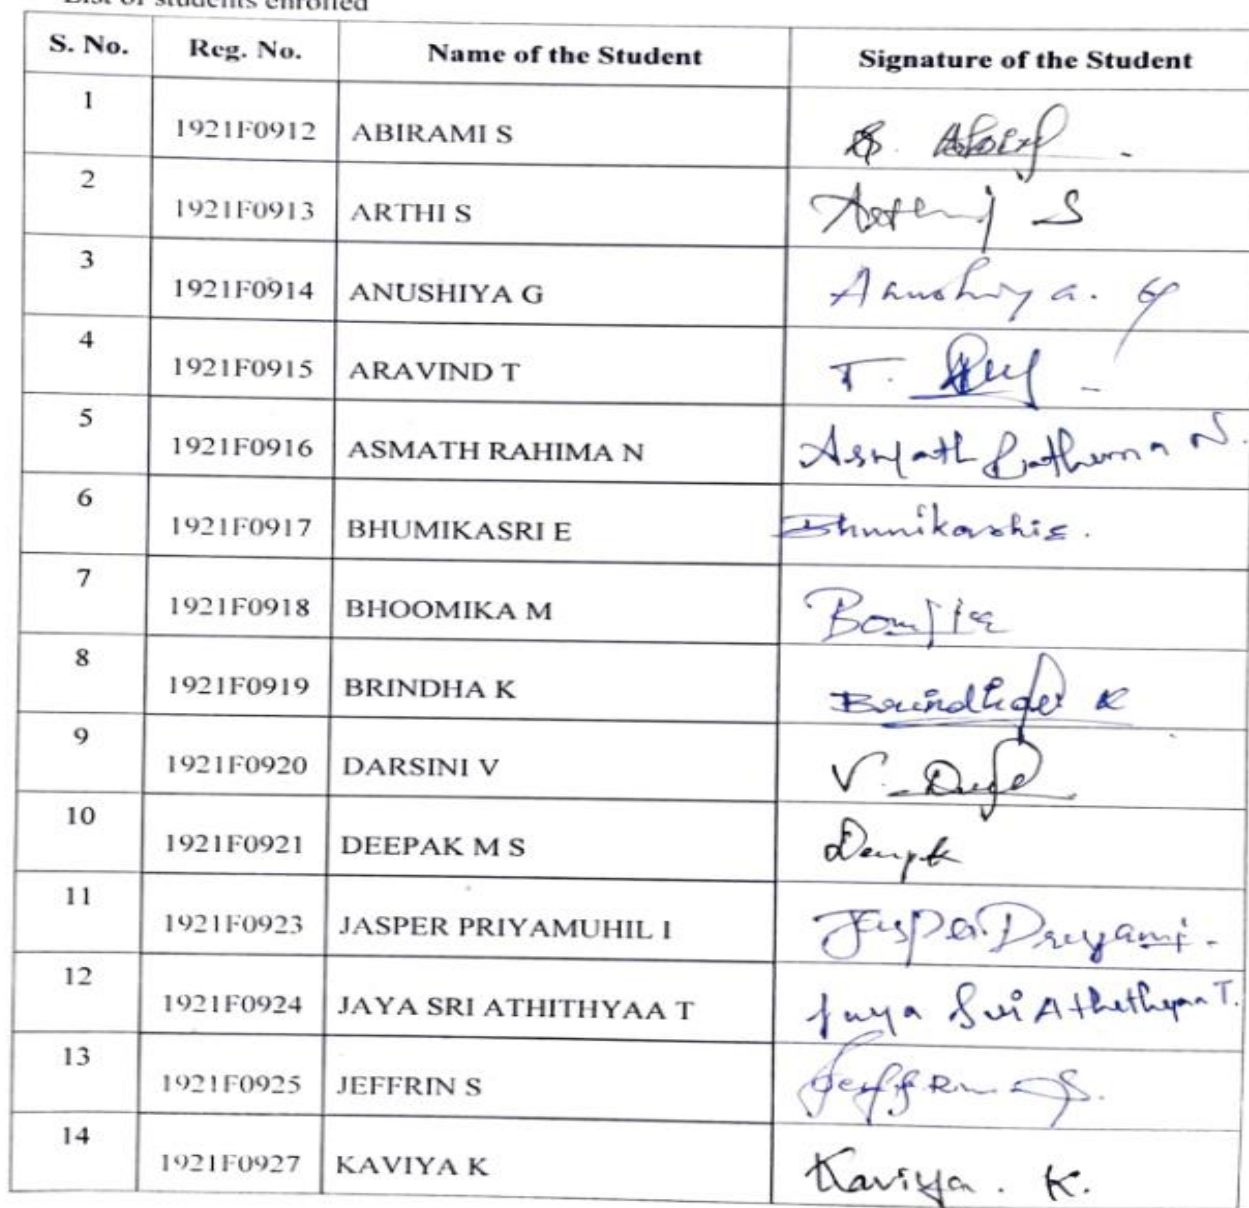 List of students enrolled
S. No. Reg. No. Name of the Student Signature of the Student
1 1921F0912 ABIRAMI S
2 1921F0913 ARTHI S
3 1921F0914 ANUSHIYA G Anushiya. G
4 1921F0915 ARAVIND T T.
5 1921F0916 ASMATH RAHIMA N Asmath N.
6 1921F0917 BHUMIKASRI E
7 1921F0918 BHOOMIKA M
8 1921F0919 BRINDHA K K
9 1921F0920 DARSINI V V.
10 1921F0921 DEEPAK M S
11 1921F0923 JASPER PRIYAMUHIL I Jasper
12 1921F0924 JAYA SRI ATHITHYAA T Jaya Sri T.
13 1921F0925 JEFFRIN S
14 1921F0927 KAVIYA K Kaviya. K.